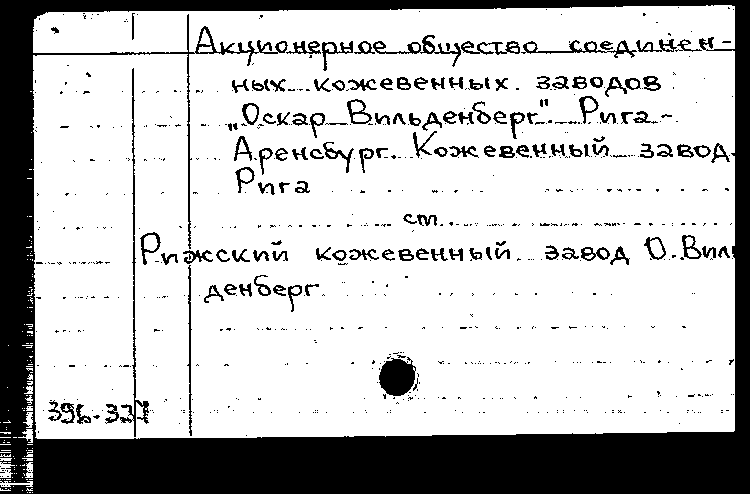 Акционерное общество соединен-
ных кожевенных заводов
„Оскар Вильденберг". Рига-
Аренсбург. Кожевенный завод.
Рига
см.
Рижский кожевенный завод О. Виль
денберг
396-337